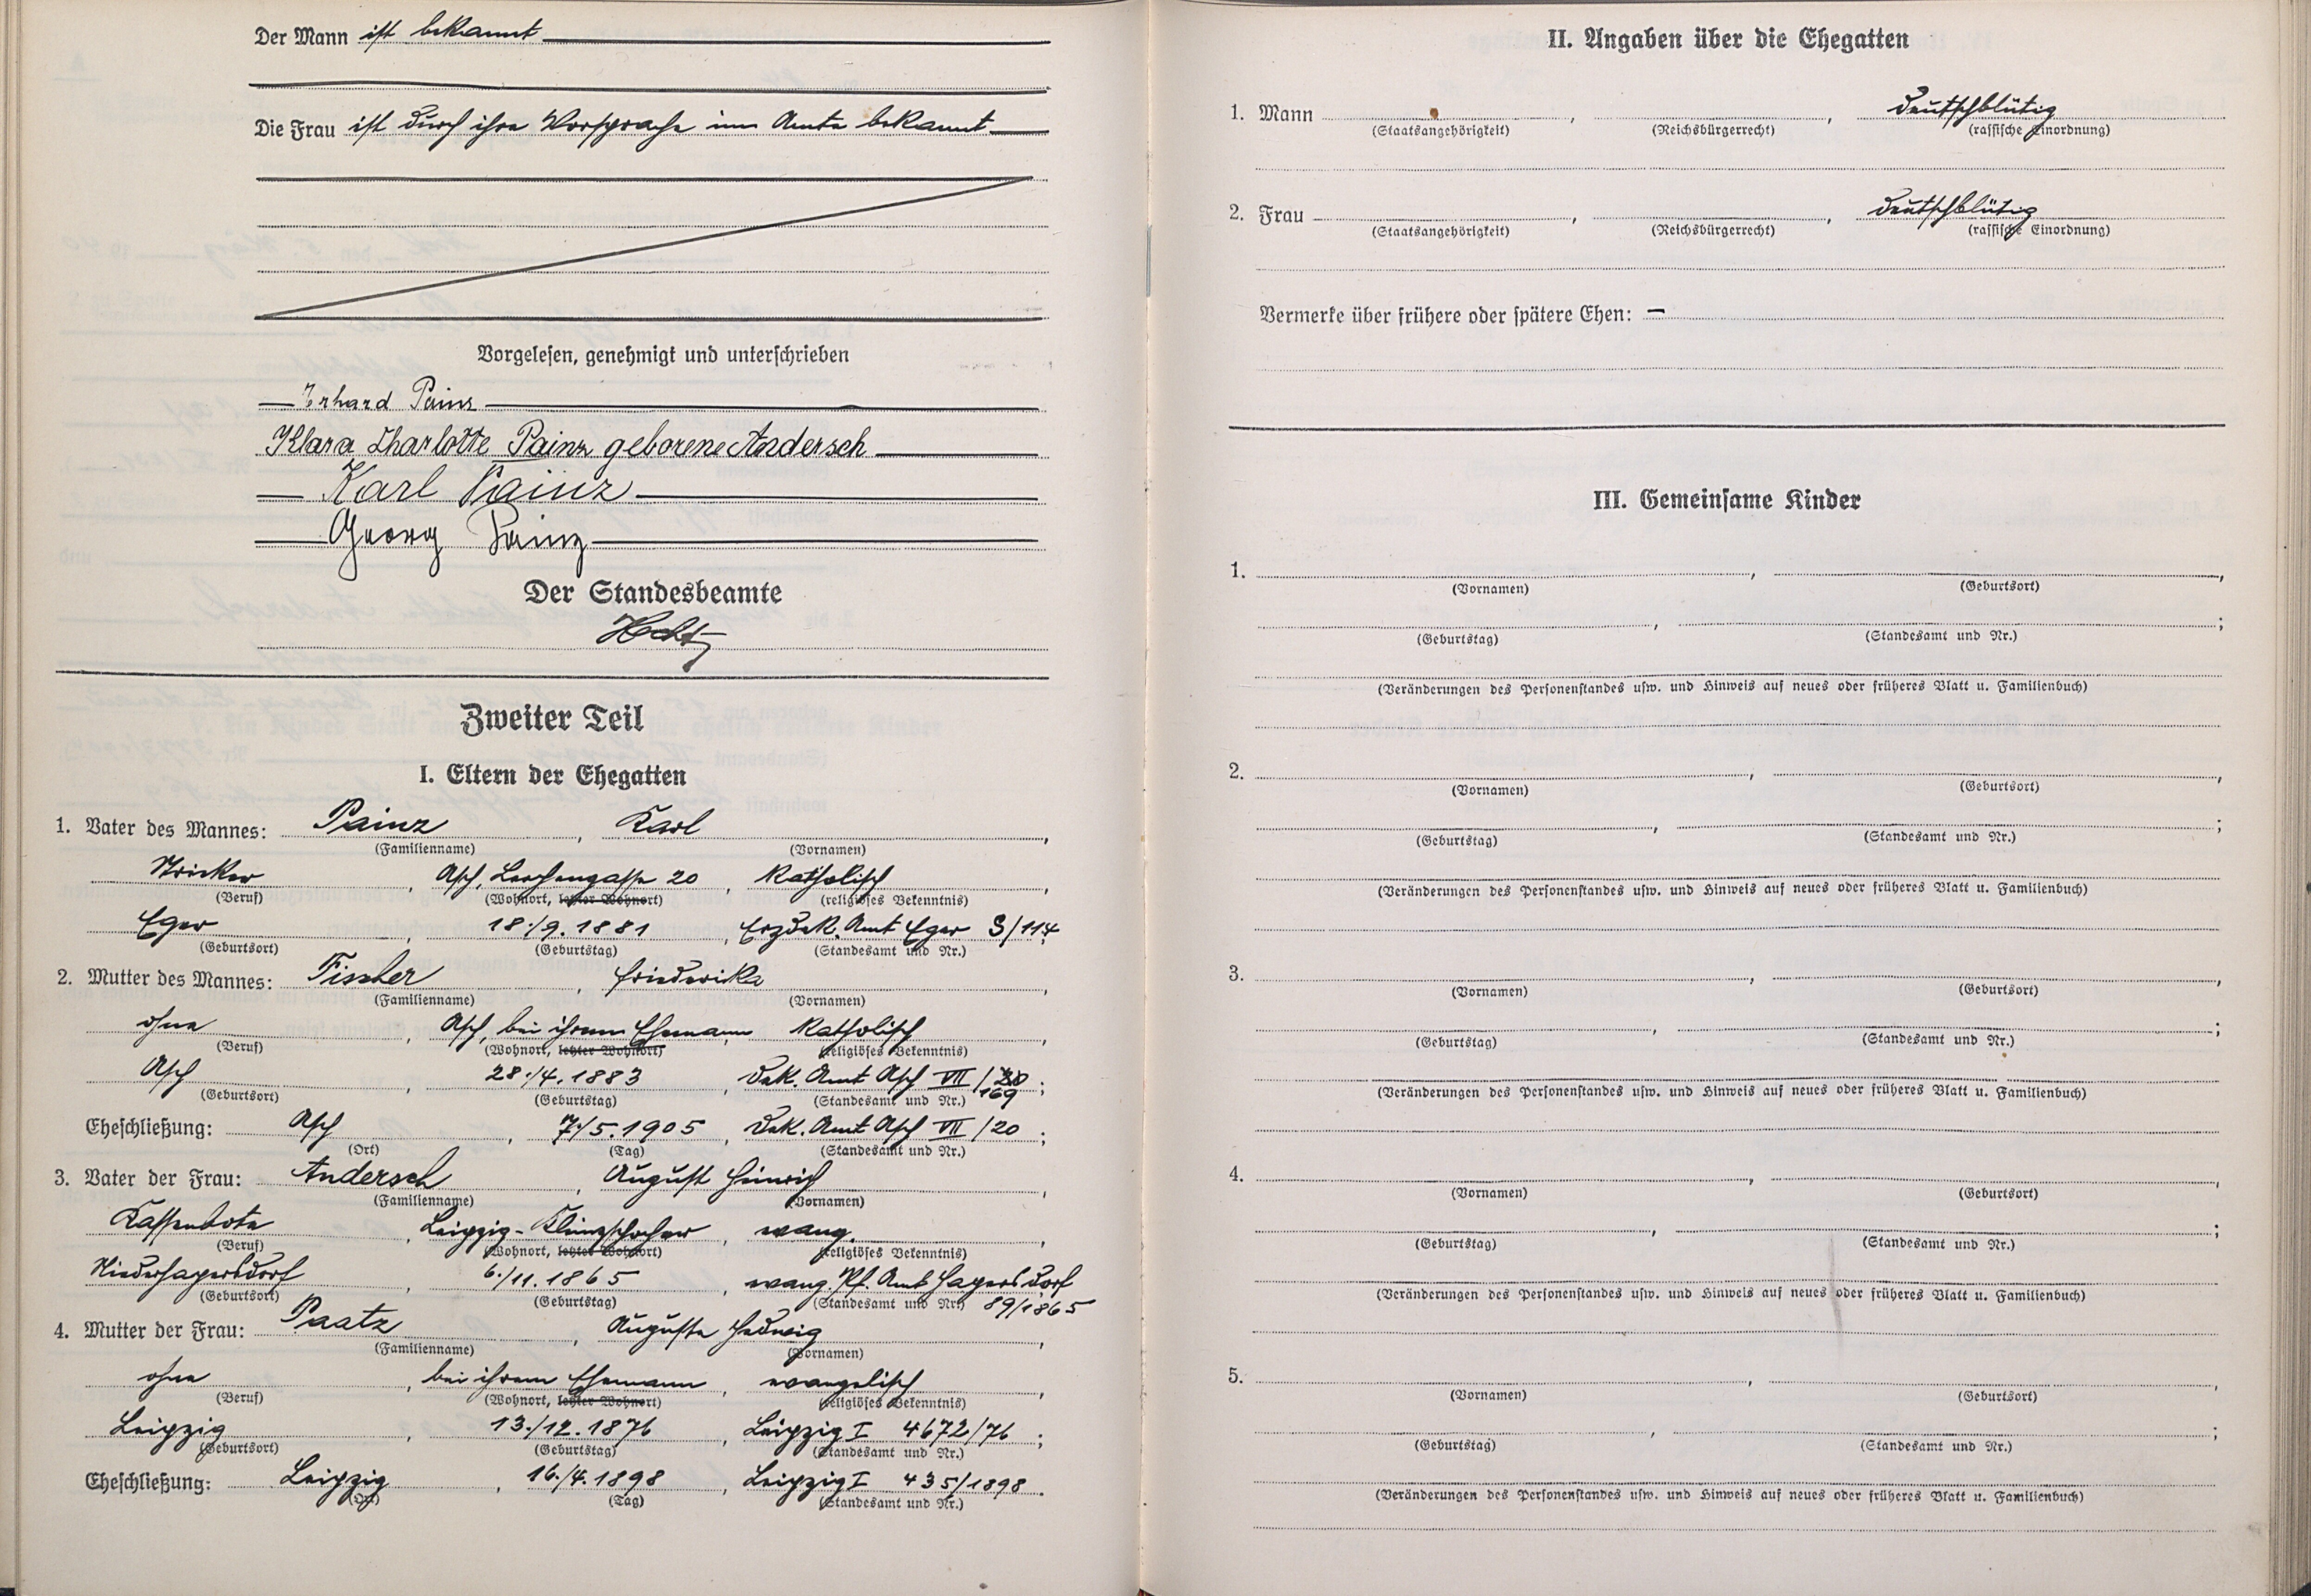 Der Mann ist bekannt
Die Frau ist durch ihre Vorsprache im Amte bekannt
Vorgelesen, genehmigt und unterschrieben
Erhard Painz
Klara Charlotte Painz geborene Andersch
Karl Painz
Georg Painz
Der Standesbeamte
Zweiter Teil
I. Eltern der Ehegatten
1. Vater des Mannes: Painz, Karl,
(Familienname) (Vornamen)
Wirker, Asch, Lerchengasse 20, katholisch,
(Beruf) (Wohnort, letzter Wohnort) (religiöses Bekenntnis)
Eger, 18./9.1881, Erzdek. Amt Eger S/114
(Geburtsort) (Geburtstag) (Standesamt und Nr.)
2. Mutter des Mannes: Fischer, Friederika,
(Familienname) (Vornamen)
ohne, Asch, bei ihrem Ehemann, katholisch,
(Beruf) (Wohnort, letzter Wohnort) (religiöses Bekenntnis)
Asch, 28./4.1883, Dek. Amt Asch VII/20;
(Geburtsort) (Geburtstag) (Standesamt und Nr.) 169
Eheschließung: Asch, 7./5.1905, Dek. Amt Asch VII/20;
(Ort) (Tag) (Standesamt und Nr.)
3. Vater der Frau: Andersch, August Heinrich,
(Familienname) (Vornamen)
Kassenbote, Leipzig-Kleinzschocher, evang.,
(Beruf) (Wohnort, letzter Wohnort) (religiöses Bekenntnis)
Niederhagersdorf, 6./11.1865, evang. Pf. Amt Hagersdorf
(Geburtsort) (Geburtstag) (Standesamt und Nr.) 89/1865
4. Mutter der Frau: Paatz, Auguste Hedwig,
(Familienname) (Vornamen)
ohne, bei ihrem Ehemann, evangelisch,
(Beruf) (Wohnort, letzter Wohnort) (religiöses Bekenntnis)
Leipzig, 13./12.1876, Leipzig I 4672/76;
(Geburtsort) (Geburtstag) (Standesamt und Nr.)
Eheschließung: Leipzig, 16./4.1898, Leipzig I 435/1898.
(Ort) (Tag) (Standesamt und Nr.)
II. Angaben über die Ehegatten
1. Mann , , deutschblütig
(Staatsangehörigkeit) (Reichsbürgerrecht) (rassische Einordnung)
2. Frau , , deutschblütig
(Staatsangehörigkeit) (Reichsbürgerrecht) (rassische Einordnung)
Vermerke über frühere oder spätere Ehen: —
III. Gemeinsame Kinder
1. , ,
(Vornamen) (Geburtsort)
, ;
(Geburtstag) (Standesamt und Nr.)
(Veränderungen des Personenstandes usw. und Hinweis auf neues oder früheres Blatt u. Familienbuch)
2. , ,
(Vornamen) (Geburtsort)
, ;
(Geburtstag) (Standesamt und Nr.)
(Veränderungen des Personenstandes usw. und Hinweis auf neues oder früheres Blatt u. Familienbuch)
3. , ,
(Vornamen) (Geburtsort)
, ;
(Geburtstag) (Standesamt und Nr.)
(Veränderungen des Personenstandes usw. und Hinweis auf neues oder früheres Blatt u. Familienbuch)
4. , ,
(Vornamen) (Geburtsort)
, ;
(Geburtstag) (Standesamt und Nr.)
(Veränderungen des Personenstandes usw. und Hinweis auf neues oder früheres Blatt u. Familienbuch)
5. , ,
(Vornamen) (Geburtsort)
, ;
(Geburtstag) (Standesamt und Nr.)
(Veränderungen des Personenstandes usw. und Hinweis auf neues oder früheres Blatt u. Familienbuch)